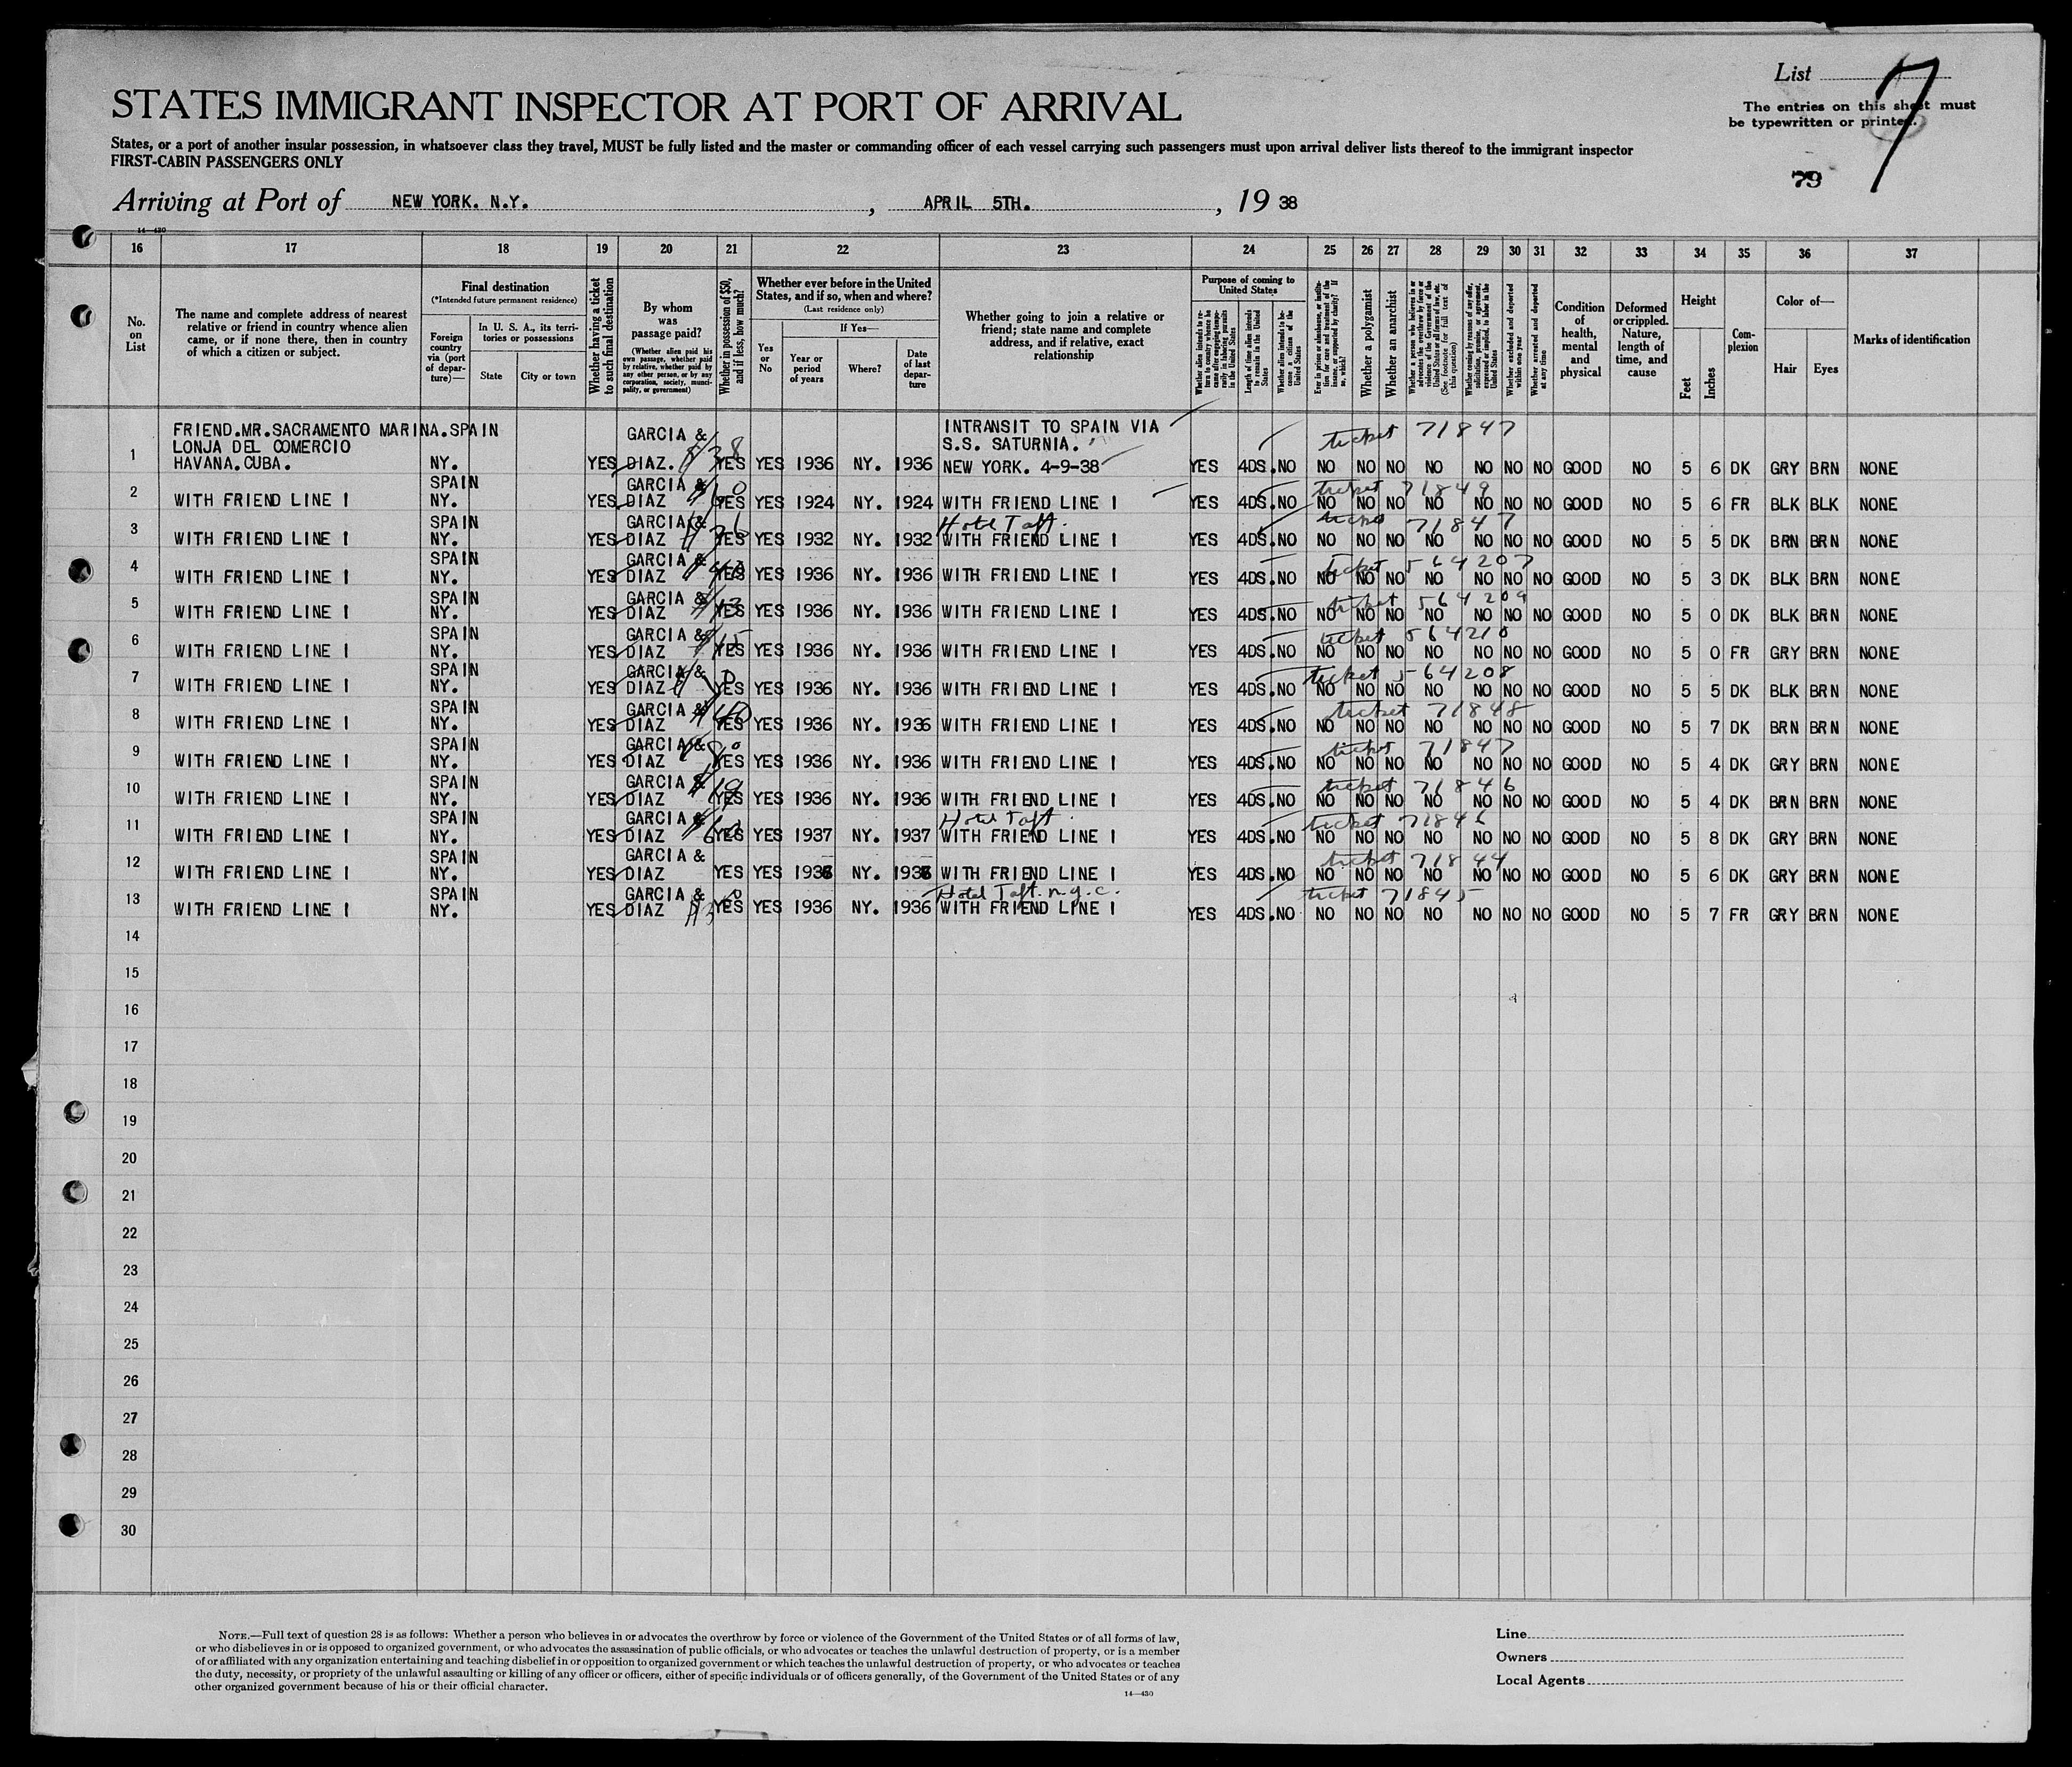 List 7
STATES IMMIGRANT INSPECTOR AT PORT OF ARRIVAL
The entries on this sheet must
be typewritten or printed.
States, or a port of another insular possession, in whatsoever class they travel, MUST be fully listed and the master or commanding officer of each vessel carrying such passengers must upon arrival deliver lists thereof to the immigrant inspector
FIRST-CABIN PASSENGERS ONLY
79
Arriving at Port of NEW YORK. N.Y. , APRIL 5TH. , 19 38
14—430
16 17 18 19 20 21 22 23 24 25 26 27 28 29 30 31 32 33 34 35 36 37
No. on List
The name and complete address of nearest relative or friend in country whence alien came, or if none there, then in country of which a citizen or subject.
Final destination
(*Intended future permanent residence)
Foreign country via (port of departure)—
In U. S. A., its territories or possessions
State
City or town
Whether having a ticket to such final destination
By whom was passage paid?
(Whether alien paid his own passage, whether paid by relative, whether paid by any other person, or by any corporation, society, municipality, or government)
Whether in possession of $50, and if less, how much?
Whether ever before in the United States, and if so, when and where?
(Last residence only)
Yes or No
If Yes—
Year or period of years
Where?
Date of last departure
Whether going to join a relative or friend; state name and complete address, and if relative, exact relationship
Purpose of coming to United States
Length of time alien intends to remain in the United States
Whether alien intends to become a citizen of the United States
Whether a polygamist
Whether an anarchist
Whether excluded and deported within one year
Whether arrested and deported at any time
Condition of health, mental and physical
Deformed or crippled. Nature, length of time, and cause
Height
Feet
Inches
Complexion
Color of—
Hair
Eyes
Marks of identification
FRIEND.MR.SACRAMENTO MARINA.SPAIN GARCIA & INTRANSIT TO SPAIN VIA ticket 71847
LONJA DEL COMERCIO S.S. SATURNIA.
1 HAVANA.CUBA. NY. YES DIAZ. YES YES 1936 NY. 1936 NEW YORK. 4-9-38 YES 4DS. NO NO NO NO NO NO NO NO GOOD NO 5 6 DK GRY BRN NONE
SPAIN GARCIA & ticket 71849
2 WITH FRIEND LINE 1 NY. YES DIAZ YES YES 1924 NY. 1924 WITH FRIEND LINE 1 YES 4DS. NO NO NO NO NO NO NO NO GOOD NO 5 6 FR BLK BLK NONE
SPAIN GARCIA & Hotel Taft. 71847
3 WITH FRIEND LINE 1 NY. YES DIAZ YES YES 1932 NY. 1932 WITH FRIEND LINE 1 YES 4DS. NO NO NO NO NO NO NO NO GOOD NO 5 5 DK BRN BRN NONE
SPAIN GARCIA & ticket 564207
4 WITH FRIEND LINE 1 NY. YES DIAZ YES YES 1936 NY. 1936 WITH FRIEND LINE 1 YES 4DS. NO NO NO NO NO NO NO NO GOOD NO 5 3 DK BLK BRN NONE
SPAIN GARCIA & ticket 564209
5 WITH FRIEND LINE 1 NY. YES DIAZ YES YES 1936 NY. 1936 WITH FRIEND LINE 1 YES 4DS. NO NO NO NO NO NO NO NO GOOD NO 5 0 DK BLK BRN NONE
SPAIN GARCIA & ticket 564210
6 WITH FRIEND LINE 1 NY. YES DIAZ YES YES 1936 NY. 1936 WITH FRIEND LINE 1 YES 4DS. NO NO NO NO NO NO NO NO GOOD NO 5 0 FR GRY BRN NONE
SPAIN GARCIA & ticket 564208
7 WITH FRIEND LINE 1 NY. YES DIAZ YES YES 1936 NY. 1936 WITH FRIEND LINE 1 YES 4DS. NO NO NO NO NO NO NO NO GOOD NO 5 5 DK BLK BRN NONE
SPAIN GARCIA & ticket 71848
8 WITH FRIEND LINE 1 NY. YES DIAZ YES YES 1936 NY. 1936 WITH FRIEND LINE 1 YES 4DS. NO NO NO NO NO NO NO NO GOOD NO 5 7 DK BRN BRN NONE
SPAIN GARCIA & ticket 71847
9 WITH FRIEND LINE 1 NY. YES DIAZ YES YES 1936 NY. 1936 WITH FRIEND LINE 1 YES 4DS. NO NO NO NO NO NO NO NO GOOD NO 5 4 DK GRY BRN NONE
SPAIN GARCIA & ticket 71846
10 WITH FRIEND LINE 1 NY. YES DIAZ YES YES 1936 NY. 1936 WITH FRIEND LINE 1 YES 4DS. NO NO NO NO NO NO NO NO GOOD NO 5 4 DK BRN BRN NONE
SPAIN GARCIA & Hotel Taft ticket 71846
11 WITH FRIEND LINE 1 NY. YES DIAZ YES YES 1937 NY. 1937 WITH FRIEND LINE 1 YES 4DS. NO NO NO NO NO NO NO NO GOOD NO 5 8 DK GRY BRN NONE
SPAIN GARCIA & ticket 71844
12 WITH FRIEND LINE 1 NY. YES DIAZ YES YES NY. WITH FRIEND LINE 1 YES 4DS. NO NO NO NO NO NO NO NO GOOD NO 5 6 DK GRY BRN NONE
SPAIN GARCIA & Hotel Taft. n.y.c. ticket 71845
13 WITH FRIEND LINE 1 NY. YES DIAZ YES YES 1936 NY. 1936 WITH FRIEND LINE 1 YES 4DS. NO NO NO NO NO NO NO NO GOOD NO 5 7 FR GRY BRN NONE
14
15
16
17
18
19
20
21
22
23
24
25
26
27
28
29
30
NOTE.—Full text of question 28 is as follows: Whether a person who believes in or advocates the overthrow by force or violence of the Government of the United States or of all forms of law,
or who disbelieves in or is opposed to organized government, or who advocates the assassination of public officials, or who advocates or teaches the unlawful destruction of property, or is a member
of or affiliated with any organization entertaining and teaching disbelief in or opposition to organized government or which teaches the unlawful destruction of property, or who advocates or teaches
the duty, necessity, or propriety of the unlawful assaulting or killing of any officer or officers, either of specific individuals or of officers generally, of the Government of the United States or of any
other organized government because of his or their official character.
14—430
Line
Owners
Local Agents